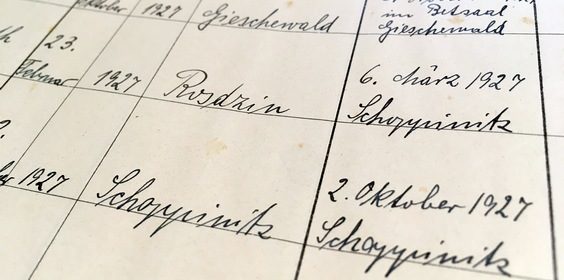 1927 Gieschewald
im Betsaal
Gieschewald
23.
Februar 1927 Rosdzin 6. März 1927
Schoppinitz
1927 Schoppinitz 2. Oktober 1927
Schoppinitz